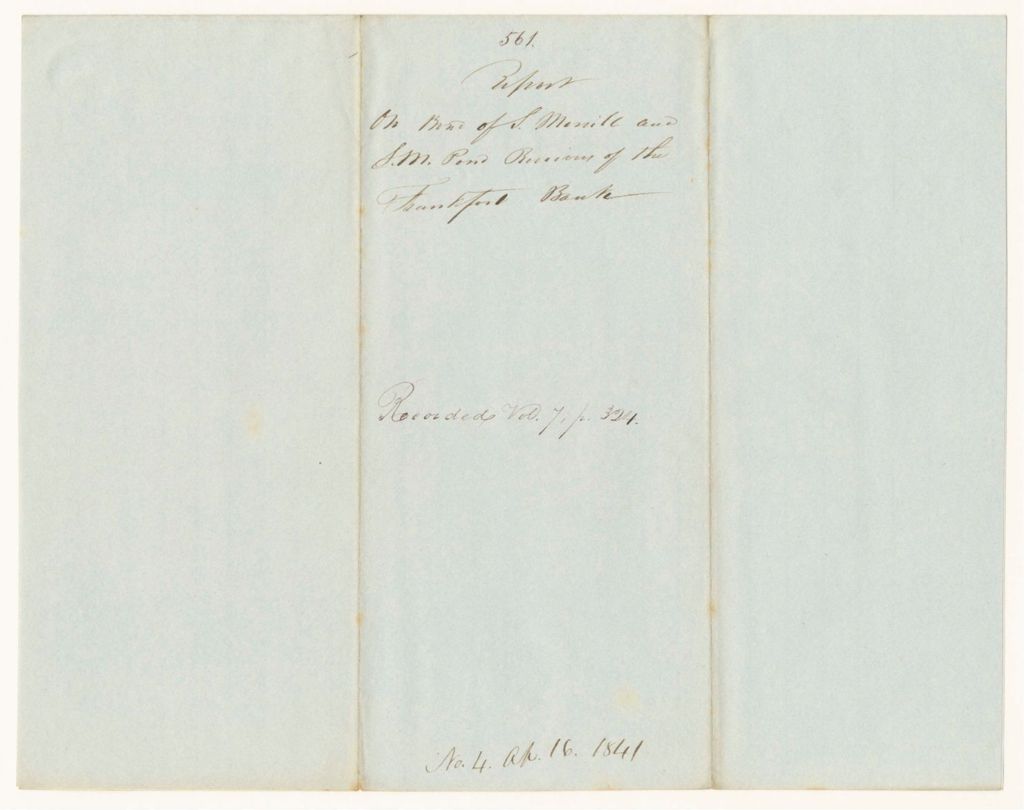 561.
Report
On Bond of S. Merrill and
S. M. Pond Receivers of the
Frankfort Bank
Recorded Vol. 7, p. 324.
No. 4. Ap. 16. 1841